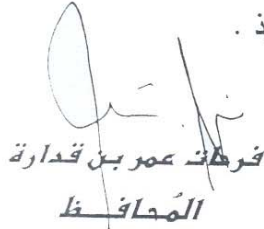 ذ .
فرحات عمر بن قدارة
المُحافــظ